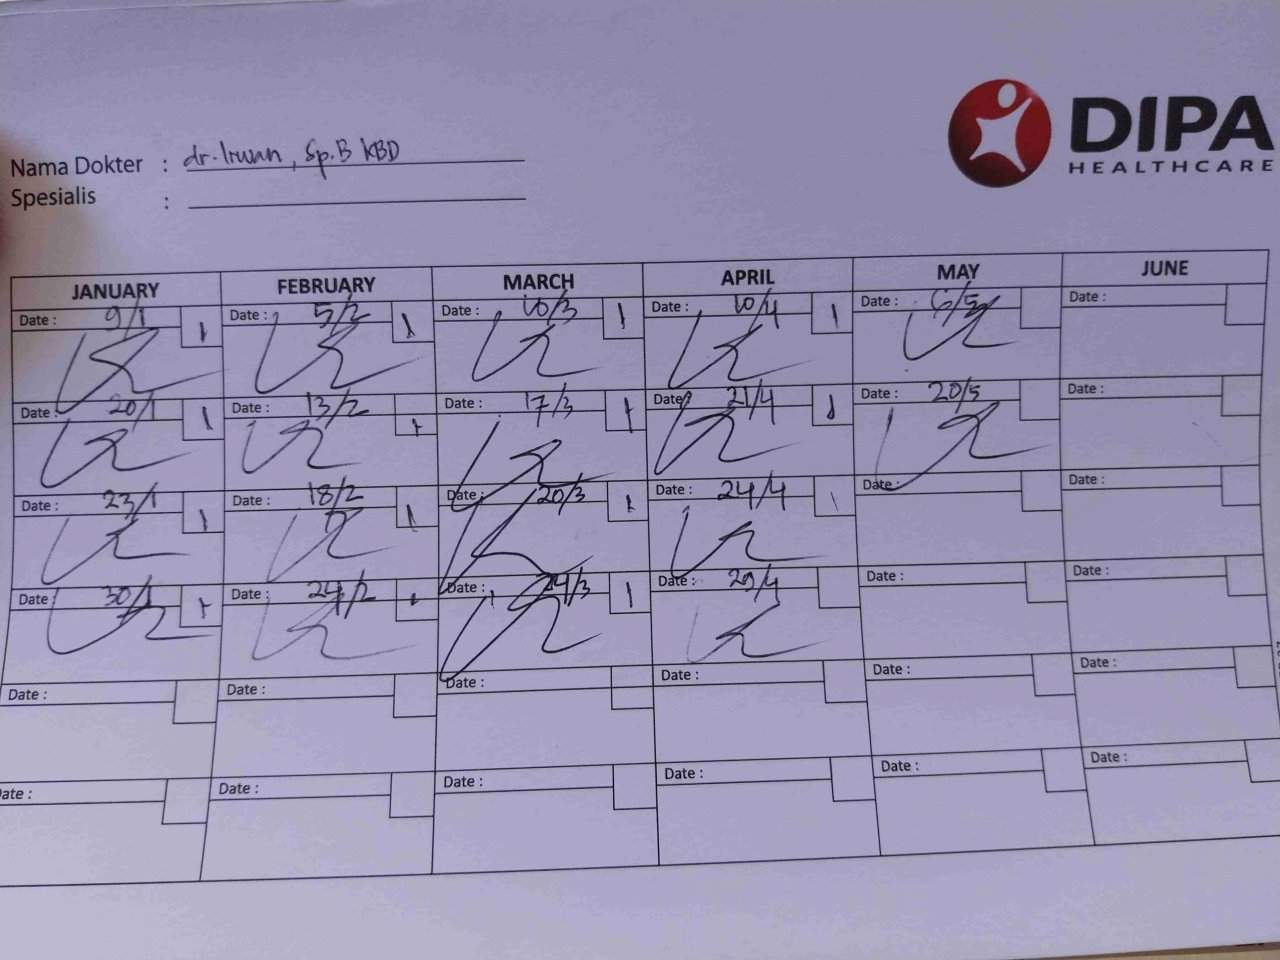 DIPA
HEALTHCARE
Nama Dokter : dr. Irwan, Sp.B KBD
Spesialis :
JANUARY FEBRUARY MARCH APRIL MAY JUNE
Date : 9/1 1 Date : 5/2 1 Date : 10/3 1 Date : 10/4 1 Date : 6/5 Date :
Date : 20/1 1 Date : 13/2 1 Date : 17/3 1 Date : 21/4 1 Date : 20/5 Date :
Date : 23/1 1 Date : 18/2 1 Date : 20/3 1 Date : 24/4 1 Date : Date :
Date 30/1 1 Date : 24/2 1 Date : 24/3 1 Date : 29/4 Date : Date :
Date : Date : Date : Date : Date : Date :
Date : Date : Date : Date : Date : Date :